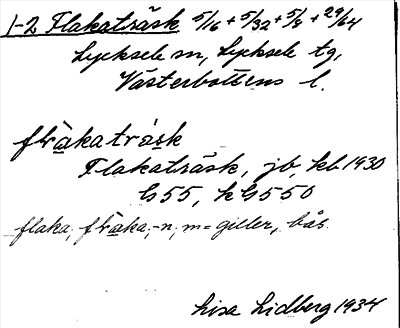 1-2 Flakaträsk 5/16 + 5/32 + 5/8 + 29/64
Lycksele sn, Lycksele tg,
Västerbottens l.
fl̀rakaträ́sk
Flakaträsk, jb, kb 1930
G55, kG550
flaka, flraka, -n, m = giller, bås.
Lisa Lidberg 1934